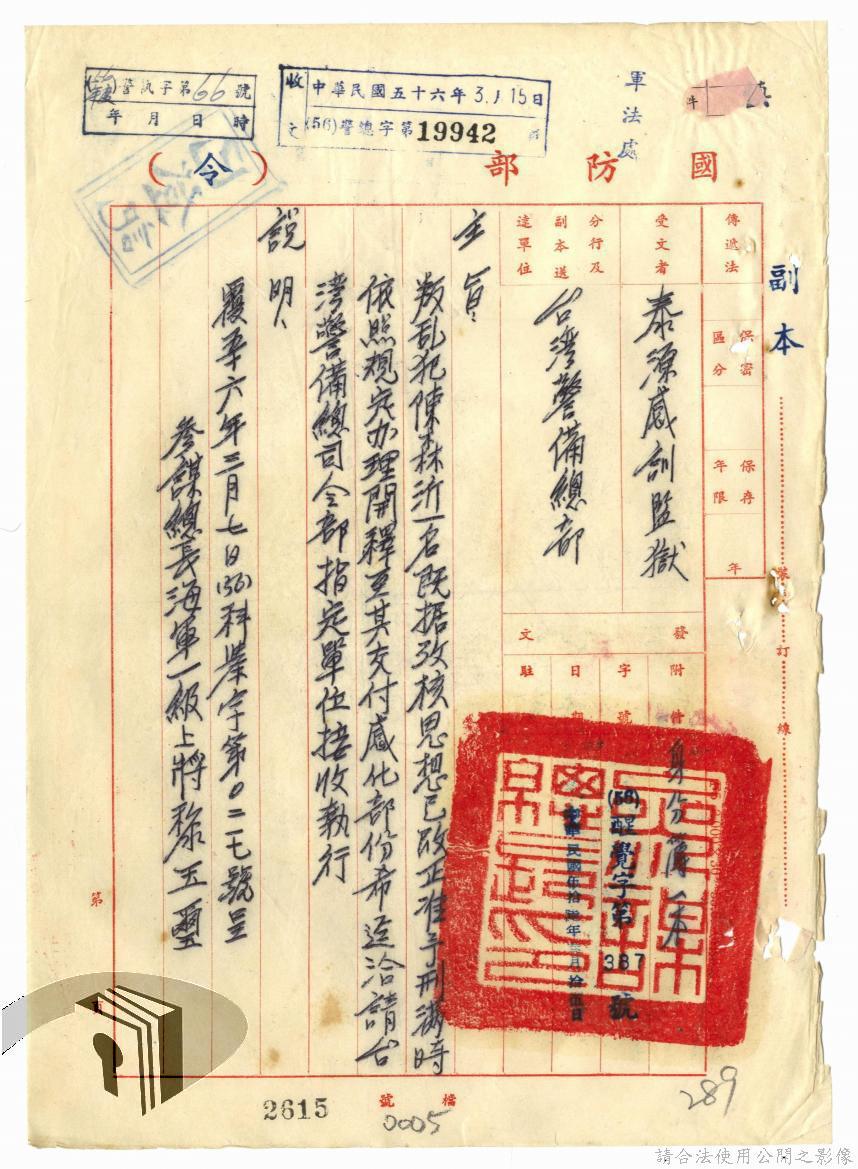 副本
國防部
（令）
軍法處
件
收文
中華民國五十六年3月15日
(56)警總字第19942
警執字第66號
年 月 日 時
傳遞法
保密區分
保存年限
年
受文者
泰源感訓監獄
分行及副本送達單位
台灣警備總部
發文
附件
身分簿一本
字號
(56)醒覺字第387號
日期
中華民國伍拾陸年三月拾伍日
駐
主旨：
叛乱犯陳森沂一名既据攷核思想已改正准予刑滿時
依照規定办理開釋至其交付感化部份希逕洽請台
湾警備總司令部指定單位接收執行
說明：
覆五十六年三月七日(56)科業字第0二一七號呈
參謀總長海軍一級上將黎玉璽
裝訂線
第
頁
檔號
2615
0005
289
請合法使用公開之影像